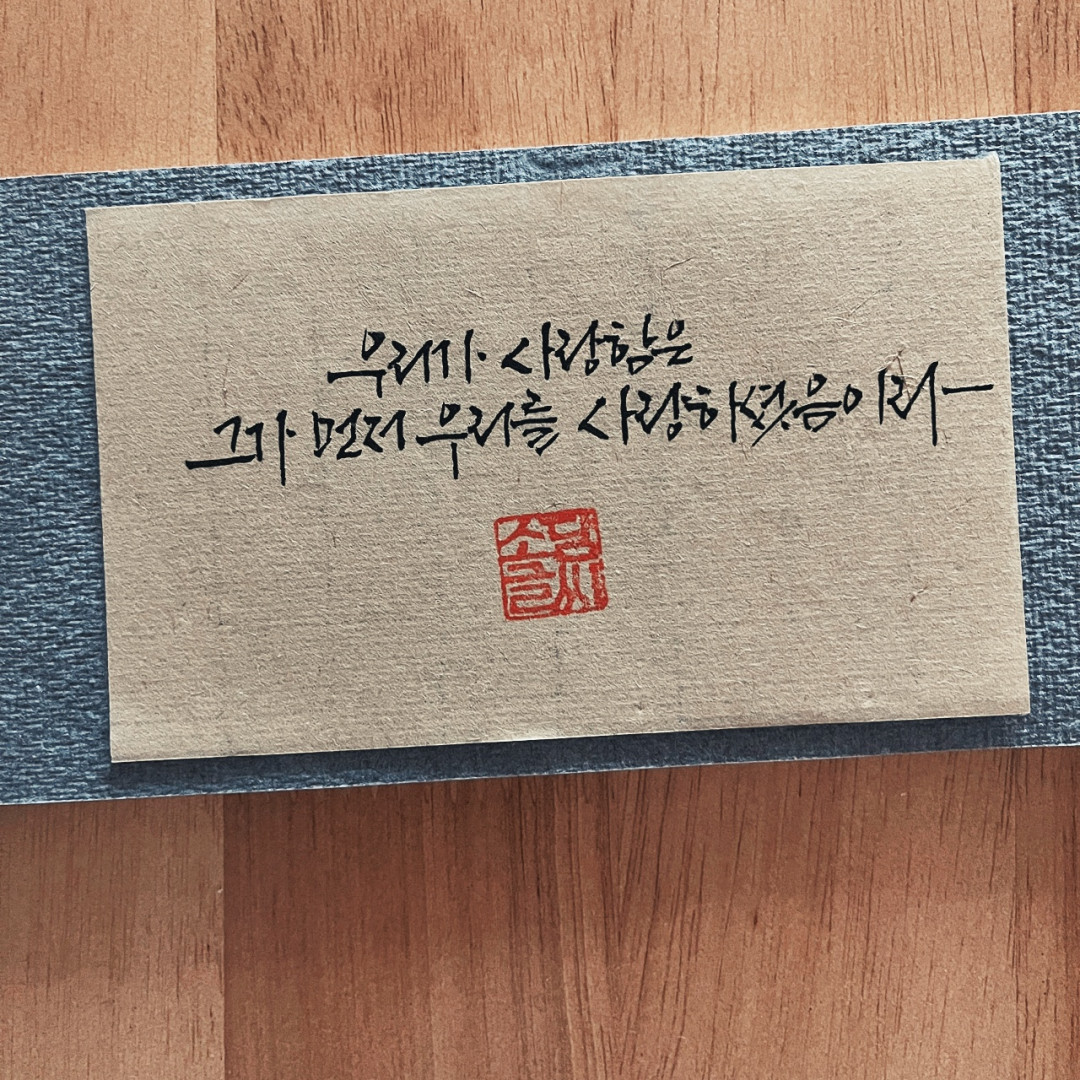 우리가 사랑함은
그가 먼저 우리를 사랑하셨음이라
소담
글씨